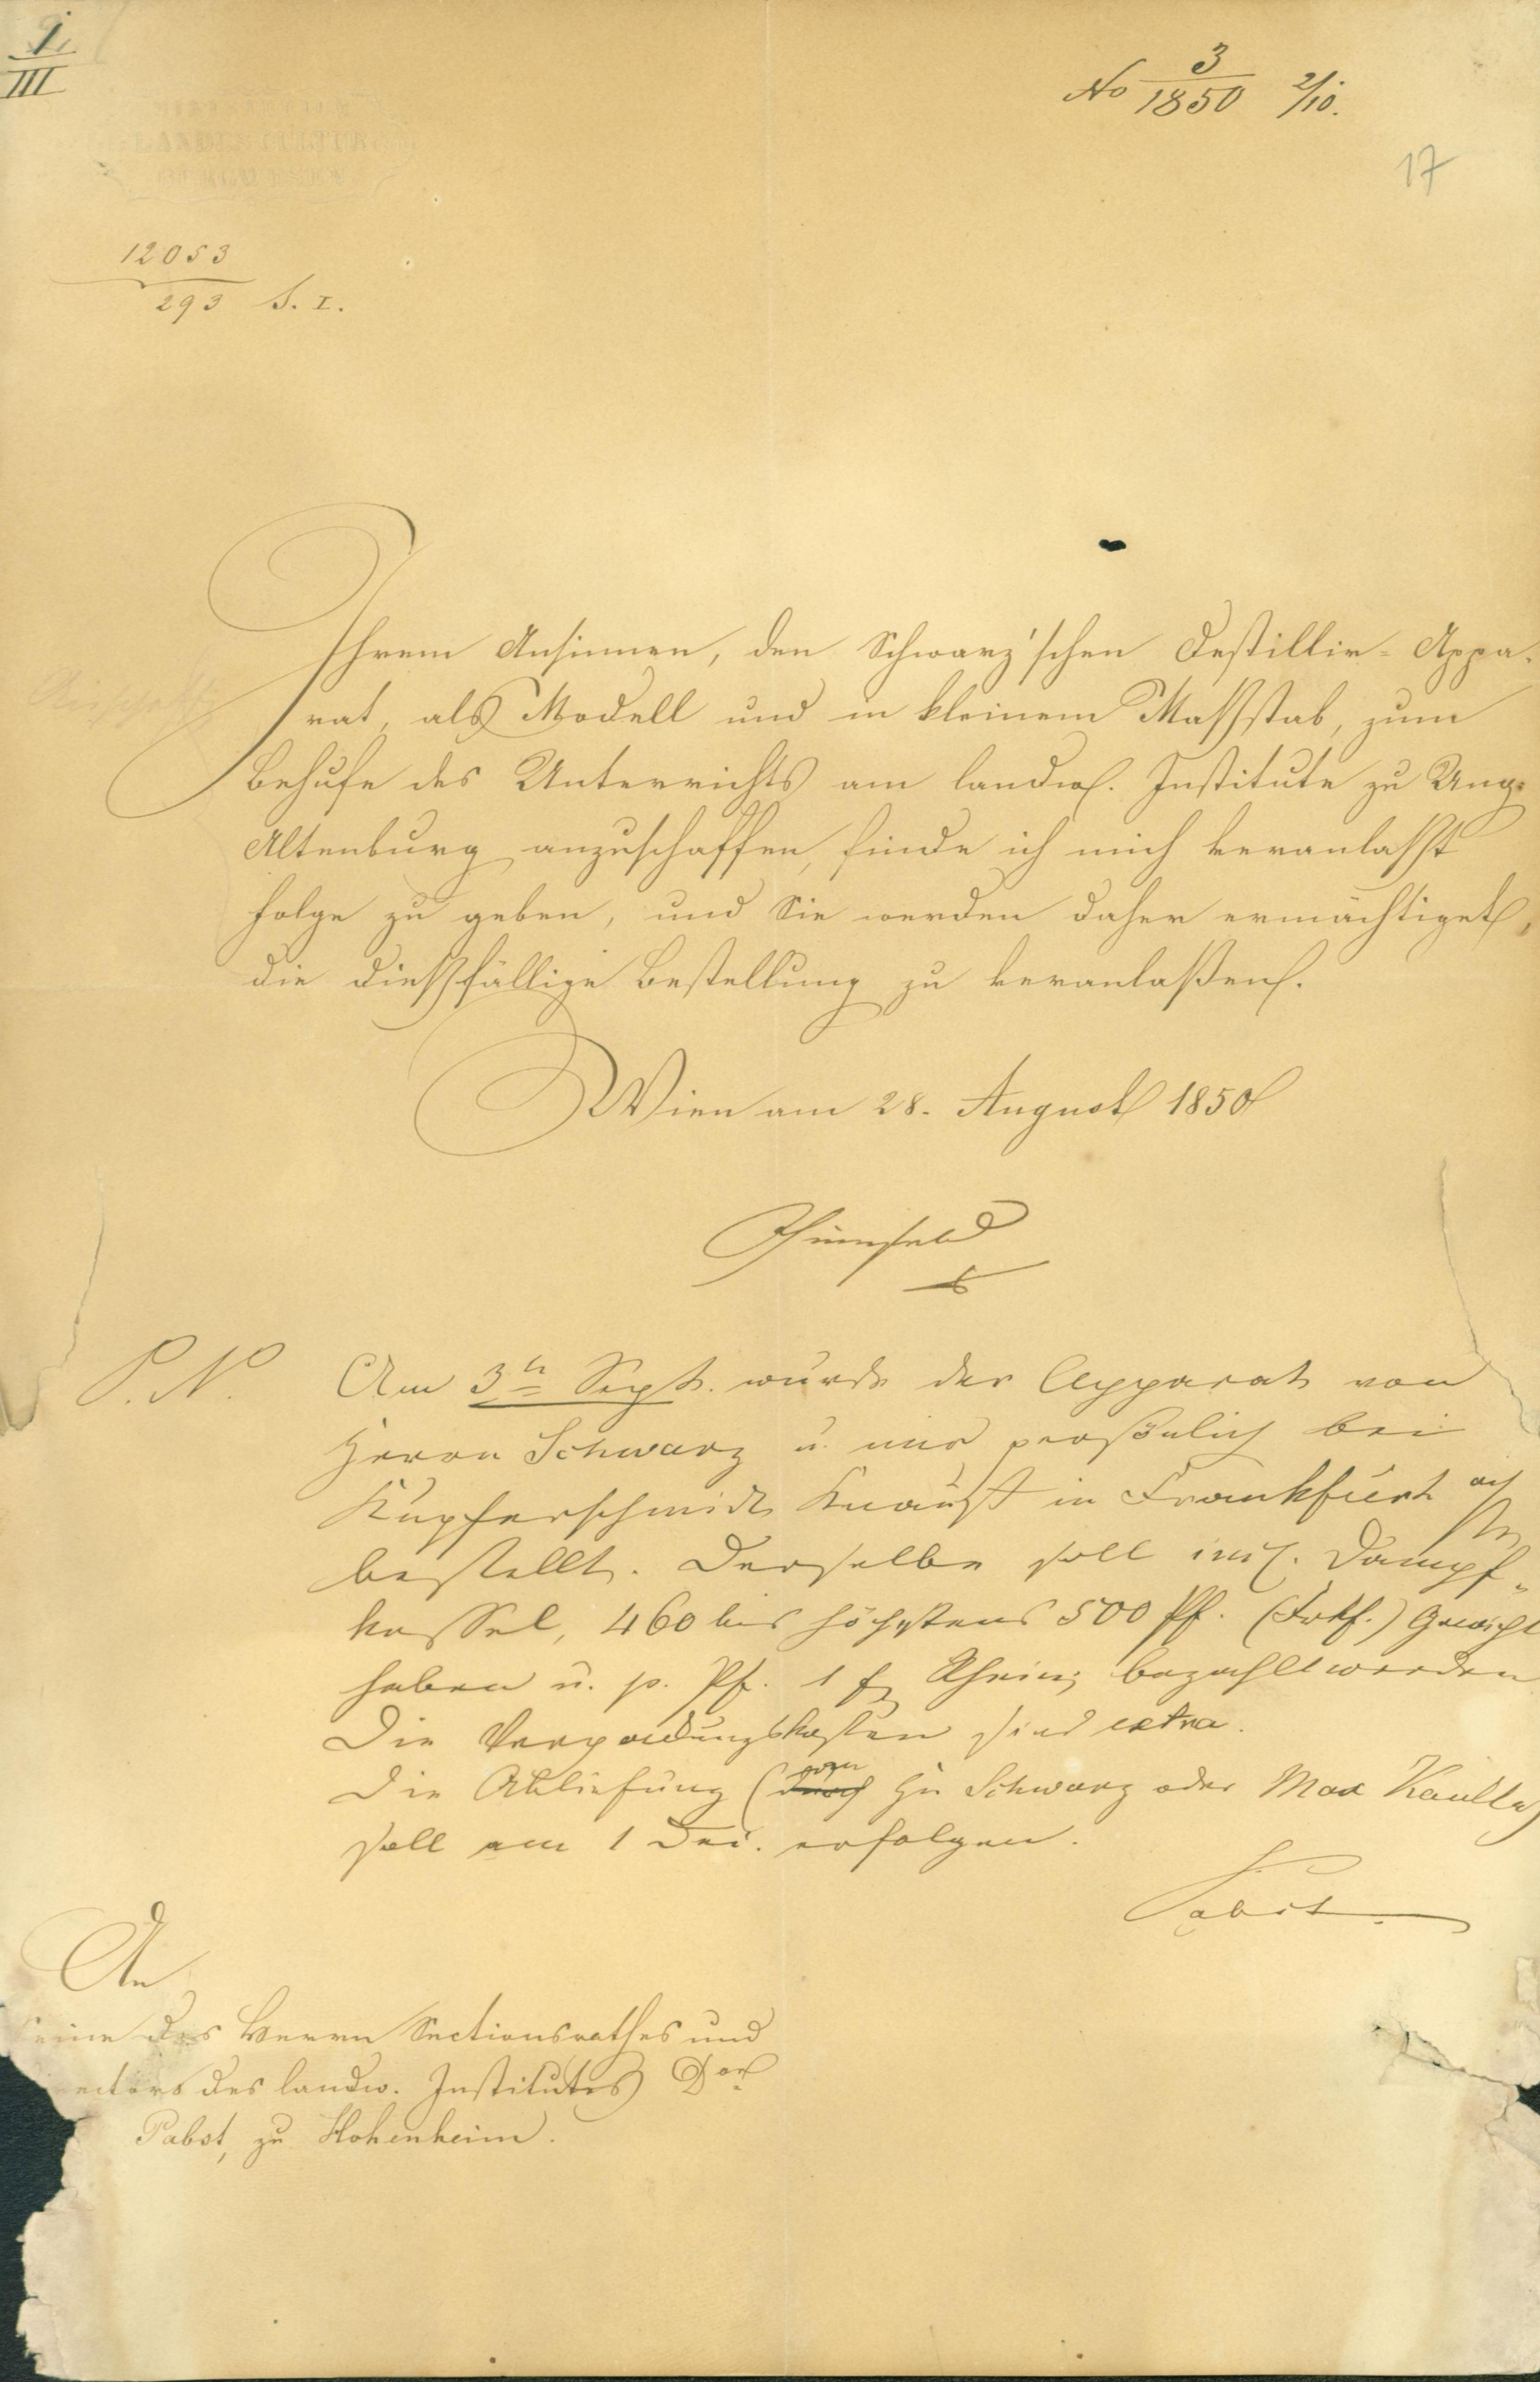 I/III
No 3/1850 2/10.
17
LANDESCULTUR
12053
293 S. I.
Ihrem Ansinnen, den Schwarz'schen Destillir-Appa-
rat, als Modell und in kleinem Maßstab, zum
Behufe des Unterrichts am landw. Institute zu Ung.
Altenburg anzuschaffen, finde ich mich veranlaßt
Folge zu geben, und Sie werden daher ermächtiget,
die dießfällige Bestellung zu veranlaßen.
Wien am 28. August 1850
Thinnfeld
P. N. Am 3tn Sept. wurde der Apparat von
Herrn Schwarz u. mir persönlich bei
Kupferschmidt Knaust in Frankfurt a/
bestellt. Derselbe soll incl. Dampf-
kessel, 460 bis höchstens 500 Pf. (Frkf.) Gewicht
haben u. p. Pf. 1 f Rhein. bezahlt werden
Die Verpackungskosten sind extra.
Die Ablieferung (gegen Hn Schwarz oder Max Kaulla)
soll am 1 erfolgen.
Pabst
An
des Herrn Sectionsrathes und
rectors des landw. Institutes Dor
Pabst, zu Hohenheim.